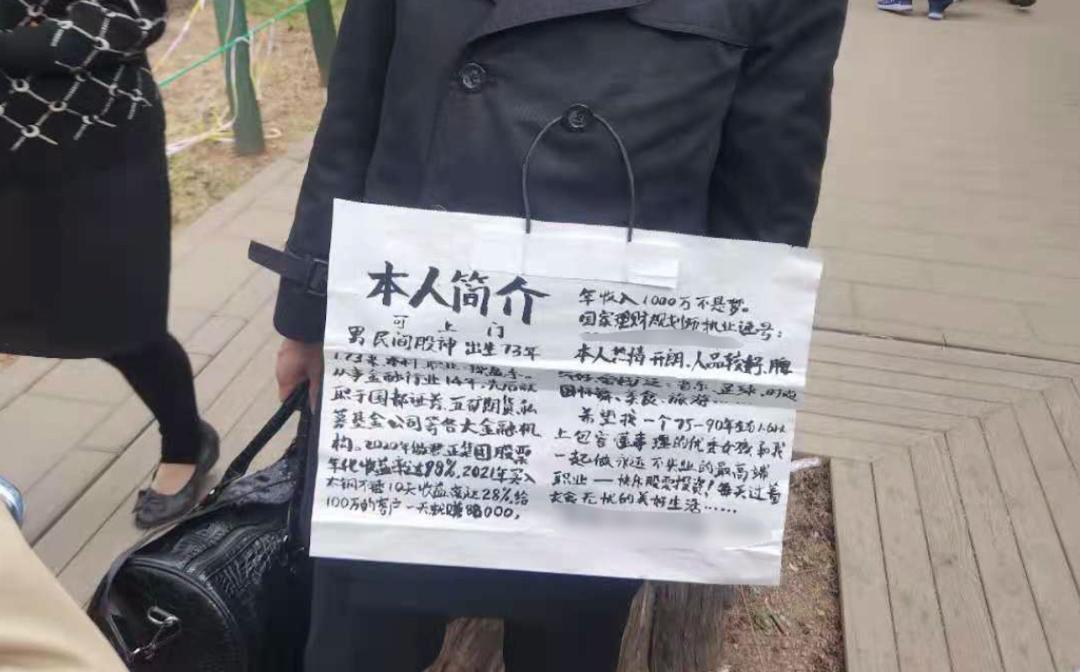 本人简介
可上门
男 民间股神 出生73年
1.73米 本科 职业
从事金融行业14年,先后就
职于国都证券、五矿期货、私
募基金公司等各大金融机
构。2020年做
年化收益率达98%,2021年买入
不够10天收益高达28%,给
100万的客户一天就赚88000,
年收入1000万不是梦。
国家理财规划师执业证号:
本人热情开朗、人品较好、脾
音乐、足球、
美食、旅游……
希望找一个75-90年
上包容 懂事理的优秀女孩和我
一起做永远不失业的最高端
职业——快乐股票投资!每天过着
无忧的美好生活……